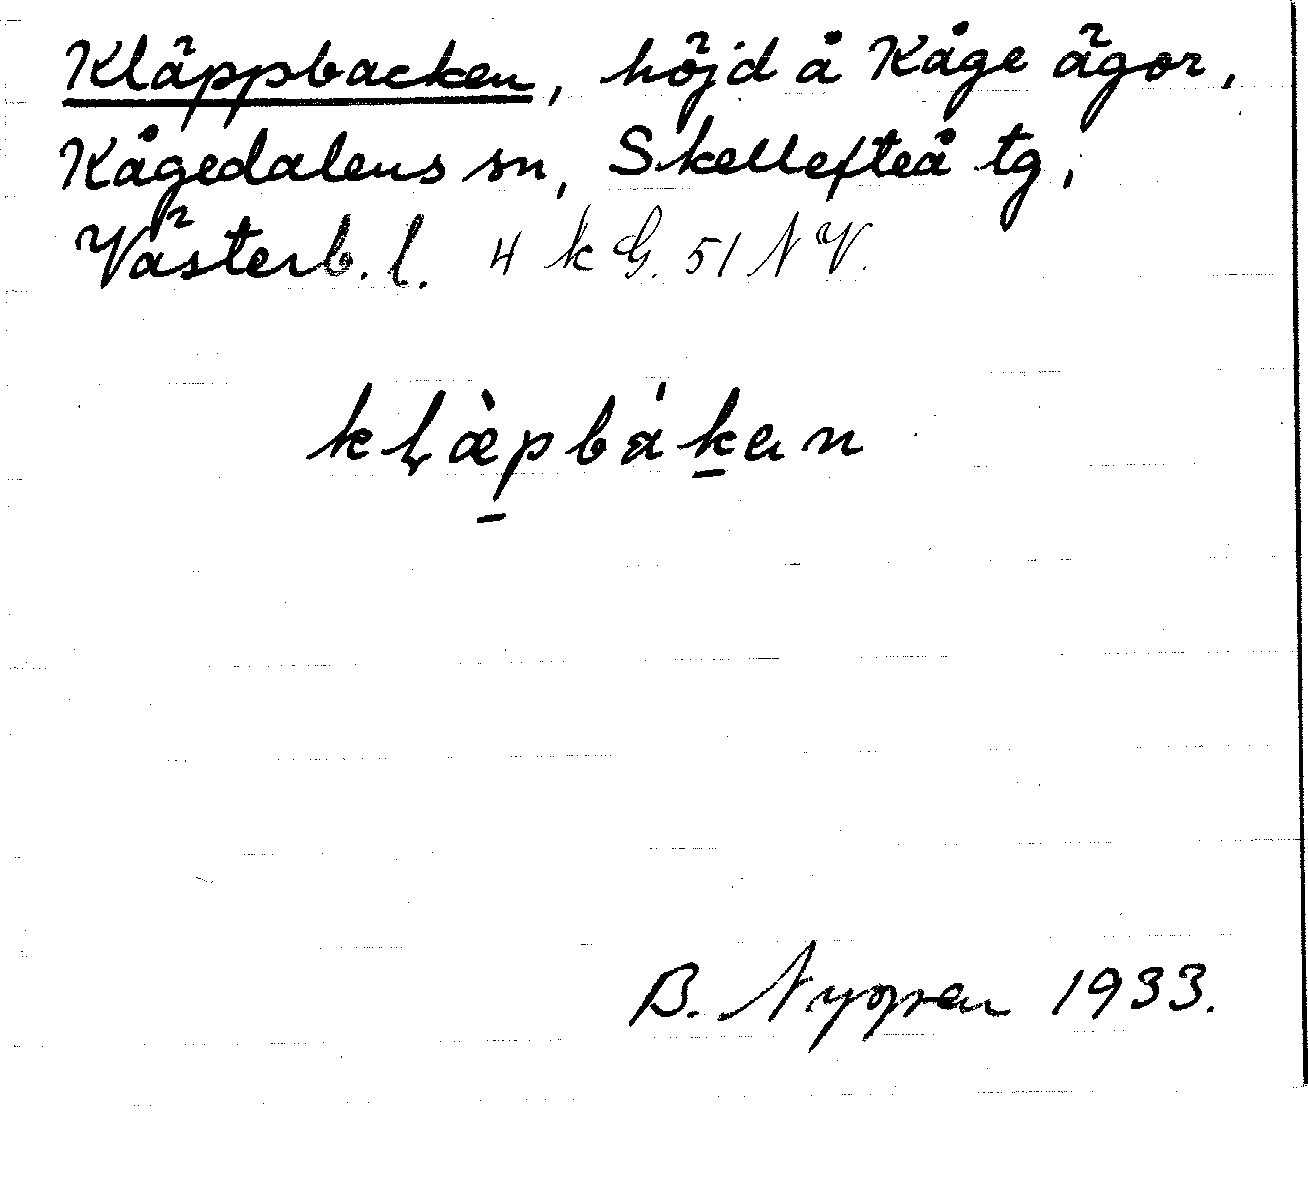 Kläppbacken, höjd å Kåge ägor,
Kågedalens sn, Skellefteå tg,
Västerb. l. 4 k G. 51 N V.
kḷæ̀p̱bák̲an
B. 1933.